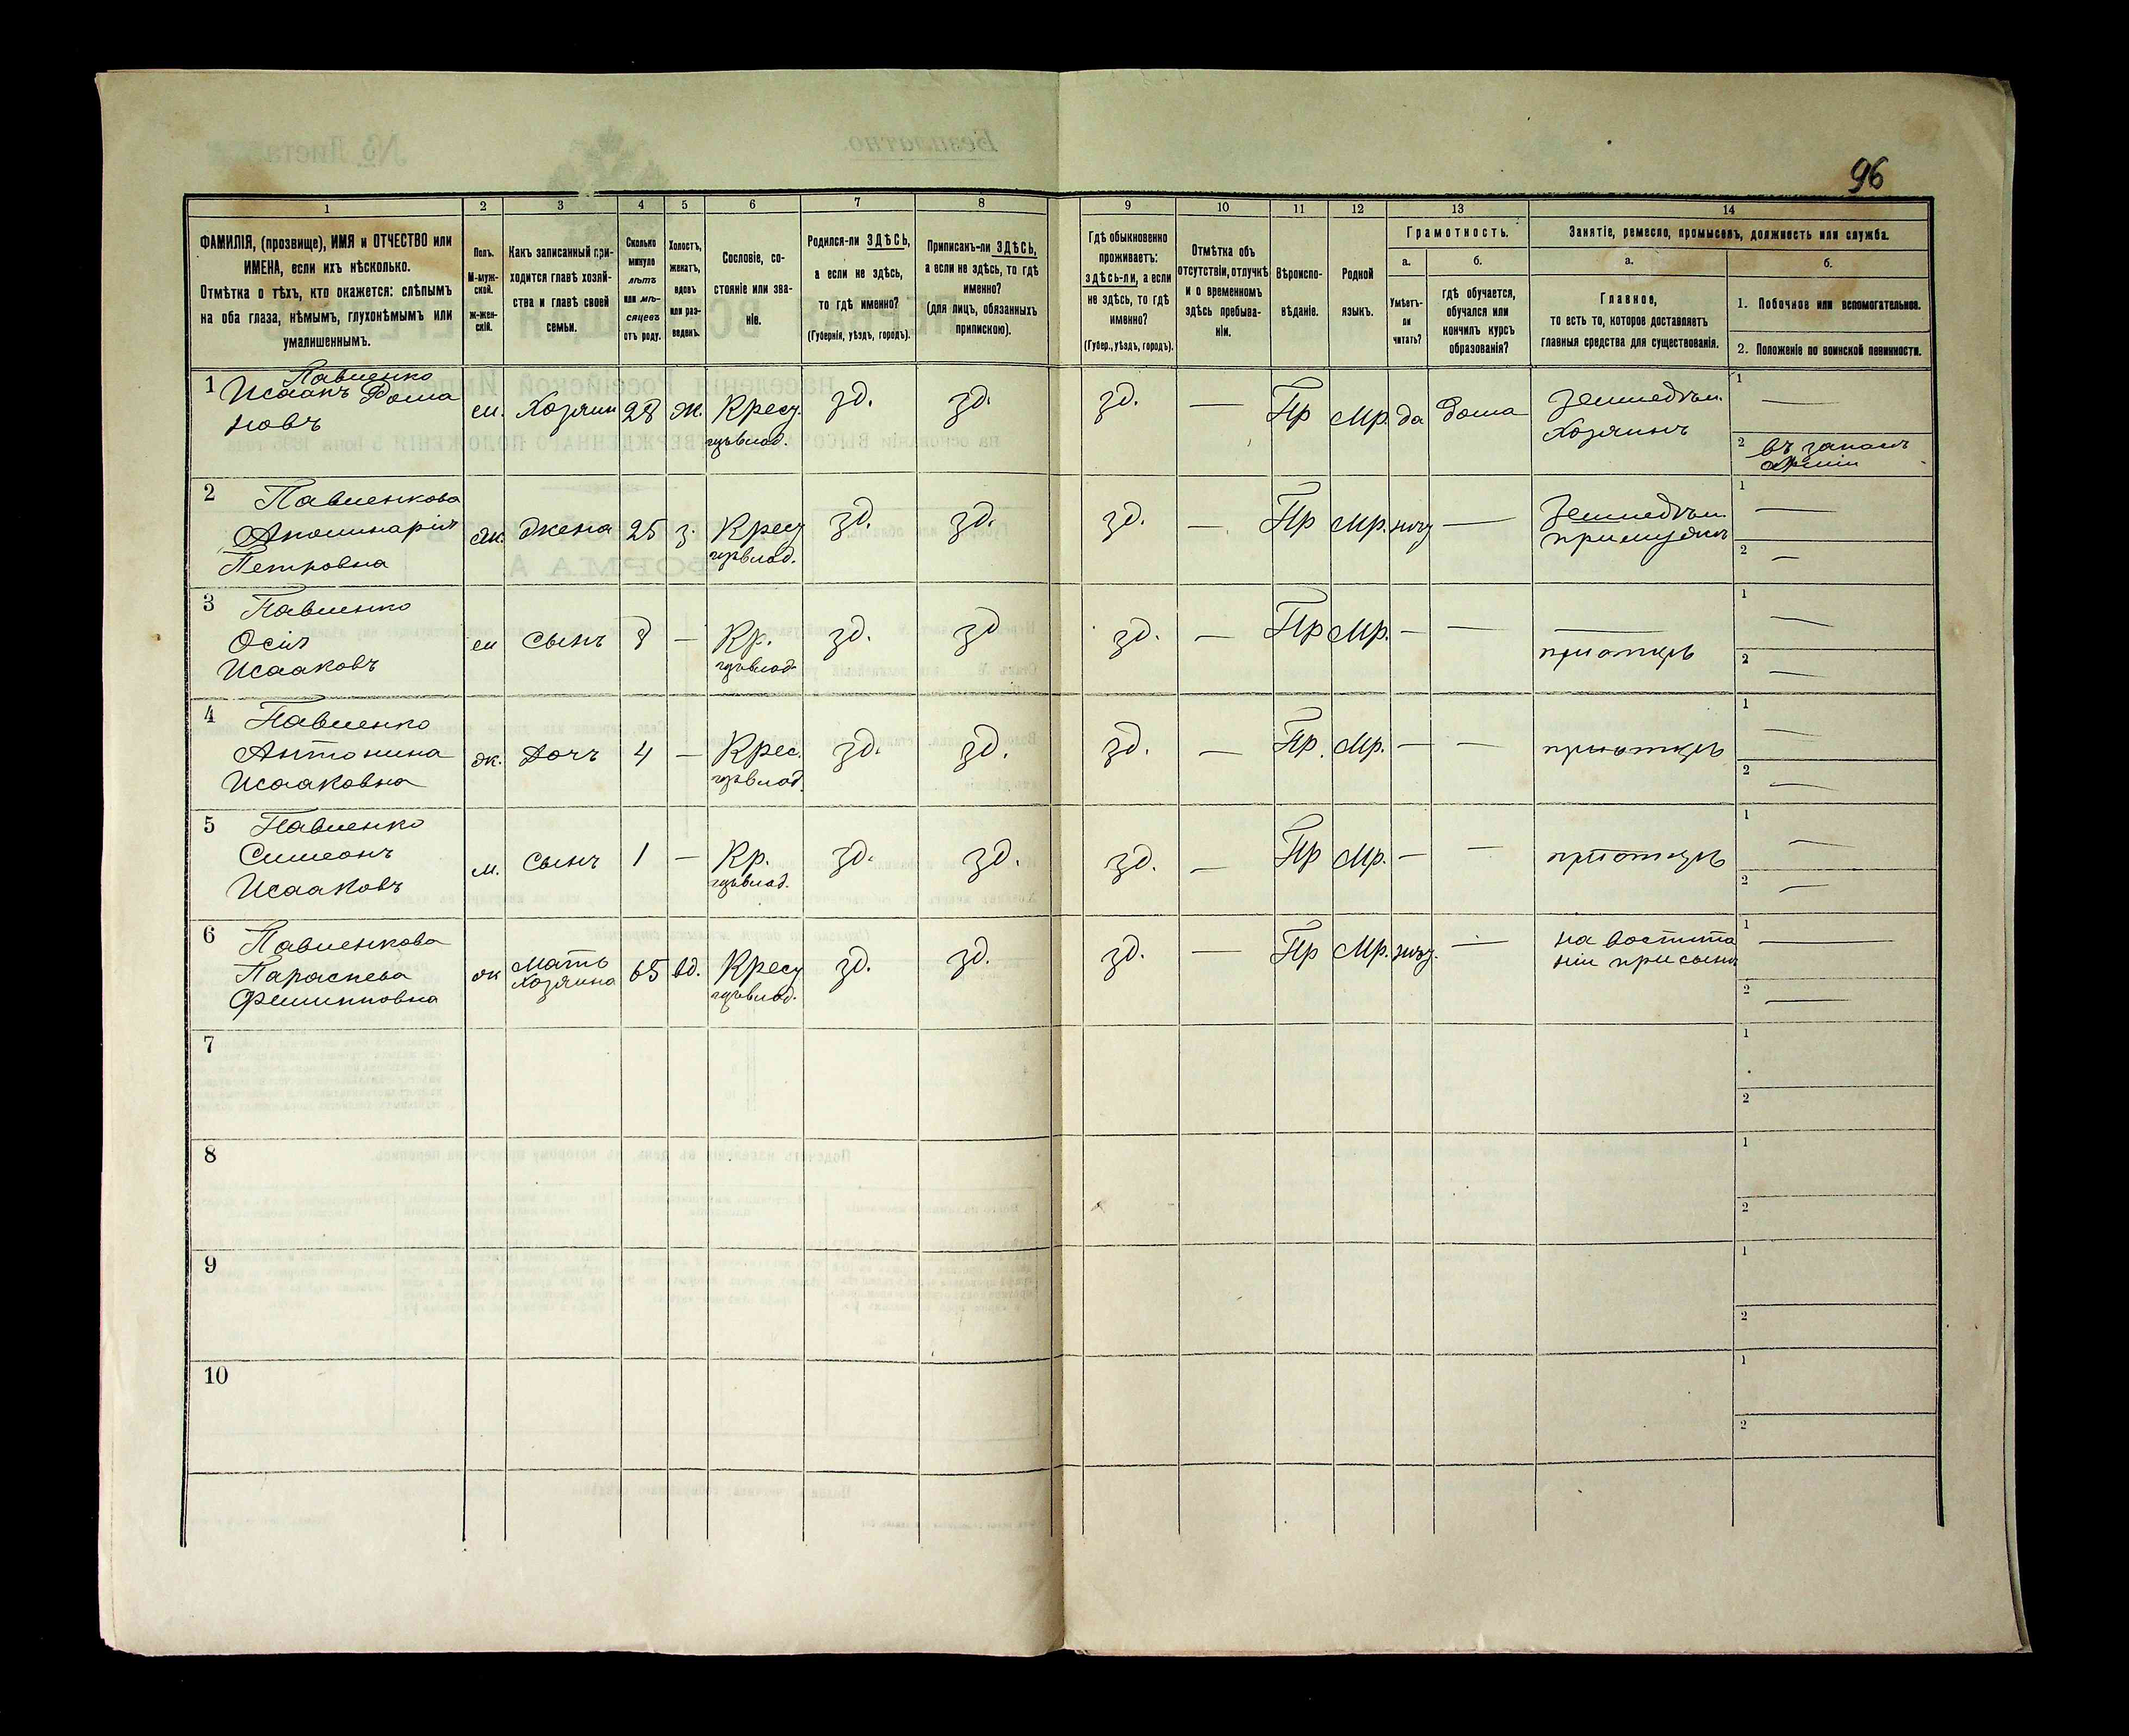 96
1 2 3 4 5 6 7 8 9 10 11 12 13 14
ФАМИЛІЯ, (прозвище), ИМЯ и ОТЧЕСТВО или
ИМЕНА, если ихъ нѣсколько.
Отмѣтка о тѣхъ, кто окажется: слѣпымъ
на оба глаза, нѣмымъ, глухонѣмымъ или
умалишеннымъ.
Полъ.
М-муж-
ской.
ж-жен-
скій.
Какъ записанный при-
ходится главѣ хозяй-
ства и главѣ своей
семьи.
Сколько
минуло
лѣтъ
или мѣ-
сяцевъ
отъ роду.
Холостъ,
женатъ,
вдовъ
или раз-
веденъ.
Сословіе, со-
стояніе или зва-
ніе.
Родился-ли ЗДѢСЬ,
а если не здѣсь,
то гдѣ именно?
(Губернія, уѣздъ, городъ).
Приписанъ-ли ЗДѢСЬ,
а если не здѣсь, то гдѣ
именно?
(для лицъ, обязанныхъ
припискою).
Гдѣ обыкновенно
проживаетъ:
здѣсь-ли, а если
не здѣсь, то гдѣ
именно?
(Губер., уѣздъ, городъ).
Отмѣтка объ
отсутствіи, отлучкѣ
и о временномъ
здѣсь пребыва-
ніи.
Вѣроиспо-
вѣданіе.
Родной
языкъ.
Грамотность.
а.
Умѣетъ-
ли
читать?
б.
гдѣ обучается,
обучался или
кончилъ курсъ
образованія?
Занятіе, ремесло, промыселъ, должность или служба.
а.
Главное,
то есть то, которое доставляетъ
главныя средства для существованія.
б.
1. Побочное или вспомогательное.
2. Положеніе по воинской повинности.
1 Павленко
Исаакъ Рома
новъ
м. Хозяин 28 ж. Крест.
зд. зд. зд. — Пр Мр. да дома
Хозяинъ
1 —
2 въ запасѣ
арміи
2 Павленкова
Аполинарія
Петровна
ж. жена 25 з. Крест
зд. зд. зд. — Пр Мр. —
при мужѣ
1 —
2 —
3 Павленко
Осія
Исааковъ
м сынъ — Кр.
зд. зд зд. — Пр Мр. — —
при отцѣ
1 —
2 —
4 Павленко
Антонина
Исааковна
ж. Дочъ 4 — Крес.
зд. зд. зд. — Пр. Мр. — —
при отцѣ
1 —
2 —
5 Павленко
Симеонъ
Исааковъ
м. сынъ 1 — Кр.
зд. зд. зд. — Пр Мр. — —
при отцѣ
1 —
2 —
6 Павленкова
Параскева
Филипповна
ж мать
хозяина
65 вд. Крест
зд. зд. зд. — Пр Мр. —
при сынѣ
1 —
2 —
7
1
2
8
1
2
9
1
2
10
1
2